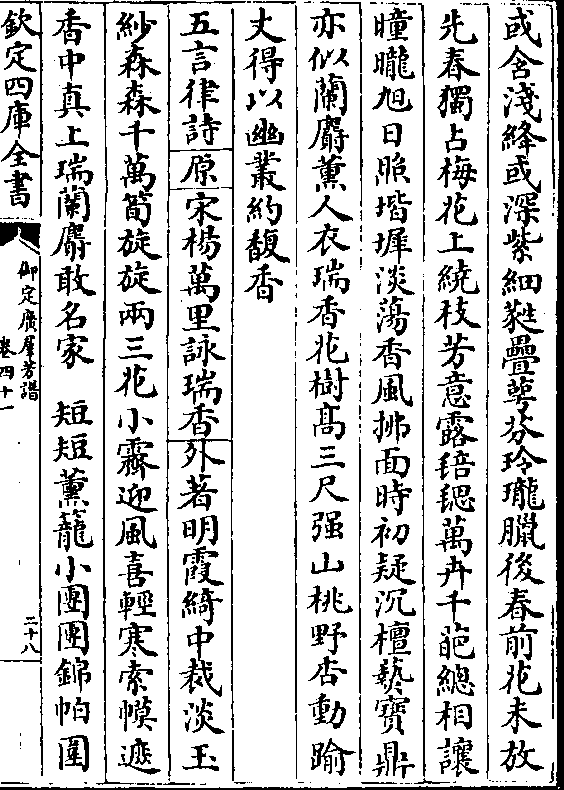 或含淺絳或深紫細蕤疊萼芬玲瓏臘後春前花未放
先春獨占梅花上繞枝芳意露䔶䰄萬卉千葩總相讓
曈曨旭日照堦墀淡蕩香風拂面時初疑沉檀爇寶鼎
亦似蘭麝薰人衣瑞香花樹高三尺强山桃野杏動踰
丈得以幽叢約馥香
五言律詩原宋楊萬里詠瑞香外著明霞綺中裁淡玉
紗森森千萬筍旋旋兩三花小霽迎風喜輕寒索幙遮
香中真上瑞蘭麝敢名家　短短薰籠小團團錦帕圍
欽定四庫全書
御定廣羣芳譜
卷四十一
二十八